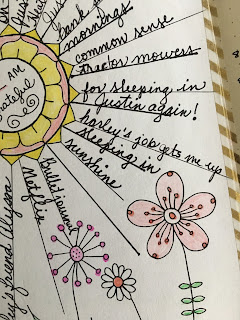 bank
mornings
common sense
tractor mowers
for sleeping in
Justin again!
harley's job gets me up
sleeping in
sunshine
Bullet journal
Netflix
friend Alyssa
AM
grateful